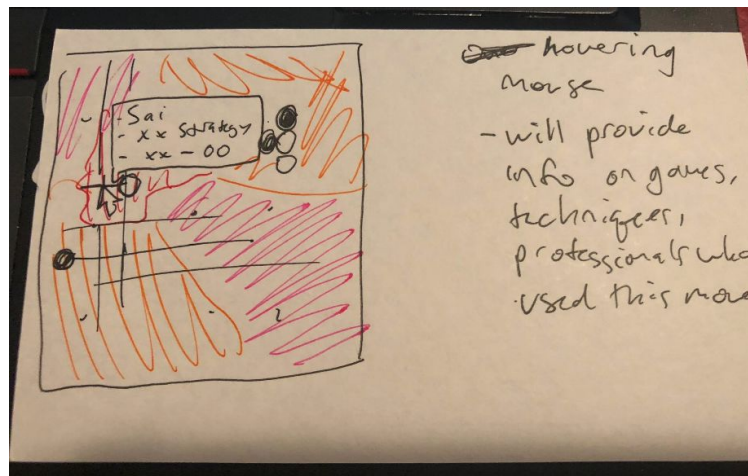 - Sai
- xx strategy
- xx - 00
hovering
mouse
- will provide
info on games,
techniques,
professionals who
used this move